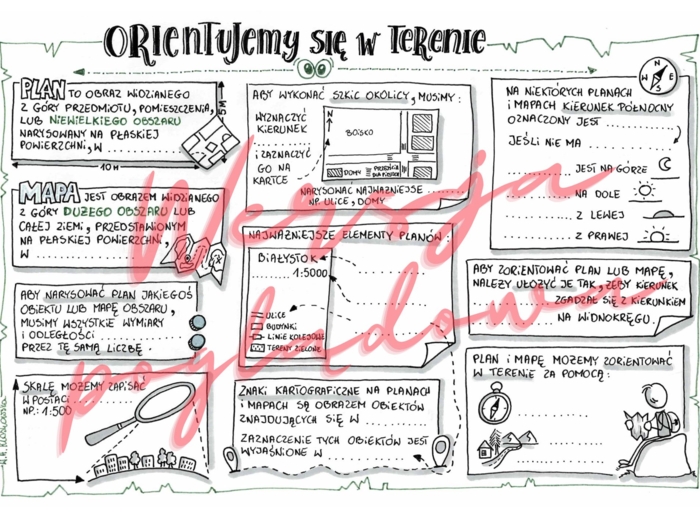 ORIENTUJEMY SIĘ W TERENIE
PLAN TO OBRAZ WIDZIANY
Z GÓRY PRZEDMIOTU, POMIESZCZENIA,
LUB NIEWIELKIEGO OBSZARU
NARYSOWANY NA PŁASKIEJ
POWIERZCHNI, W ..............
10 M
5 M
MAPA JEST OBRAZEM WIDZIANEGO
Z GÓRY DUŻEGO OBSZARU LUB
CAŁEJ ZIEMI, PRZEDSTAWIONYM
NA PŁASKIEJ POWIERZCHNI,
W ..................
ABY NARYSOWAĆ PLAN JAKIEGOŚ
OBIEKTU LUB MAPĘ OBSZARU,
MUSIMY WSZYSTKIE WYMIARY
I ODLEGŁOŚCI ..............
PRZEZ TĘ SAMĄ LICZBĘ
SKALĘ MOŻEMY ZAPISAĆ
W POSTACI ..............
NP.: 1:500
ABY WYKONAĆ SZKIC OKOLICY, MUSIMY:
WYZNACZYĆ
KIERUNEK
..............
I ZAZNACZYĆ
GO NA
KARTCE
N
BOISKO
DOMY
PRZEJŚCIE
DLA PIESZYCH
NARYSOWAĆ NAJWAŻNIEJSZE ..............
NP. ULICE, DOMY
NAJWAŻNIEJSZE ELEMENTY PLANÓW:
BIAŁYSTOK
1:5000
ULICE
BUDYNKI
LINIE KOLEJOWE
TERENY ZIELONE
ZNAKI KARTOGRAFICZNE NA PLANACH
I MAPACH SĄ OBRAZEM OBIEKTÓW
ZNAJDUJĄCYCH SIĘ W ..........
ZAZNACZENIE TYCH OBIEKTÓW JEST
WYJAŚNIONE W ..............
N
W
E
S
NA NIEKTÓRYCH PLANACH
I MAPACH KIERUNEK PÓŁNOCNY
OZNACZONY JEST ..............
JEŚLI NIE MA ..............
.............. JEST NA GÓRZE
.............. NA DOLE
.............. Z LEWEJ
.............. Z PRAWEJ
ABY ZORIENTOWAĆ PLAN LUB MAPĘ,
NALEŻY UŁOŻYĆ JE TAK, ŻEBY KIERUNEK
.............. ZGADZAŁ SIĘ Z KIERUNKIEM
.............. NA WIDNOKRĘGU.
PLAN I MAPĘ MOŻEMY ZORIENTOWAĆ
W TERENIE ZA POMOCĄ:
Wersja
poglądowa